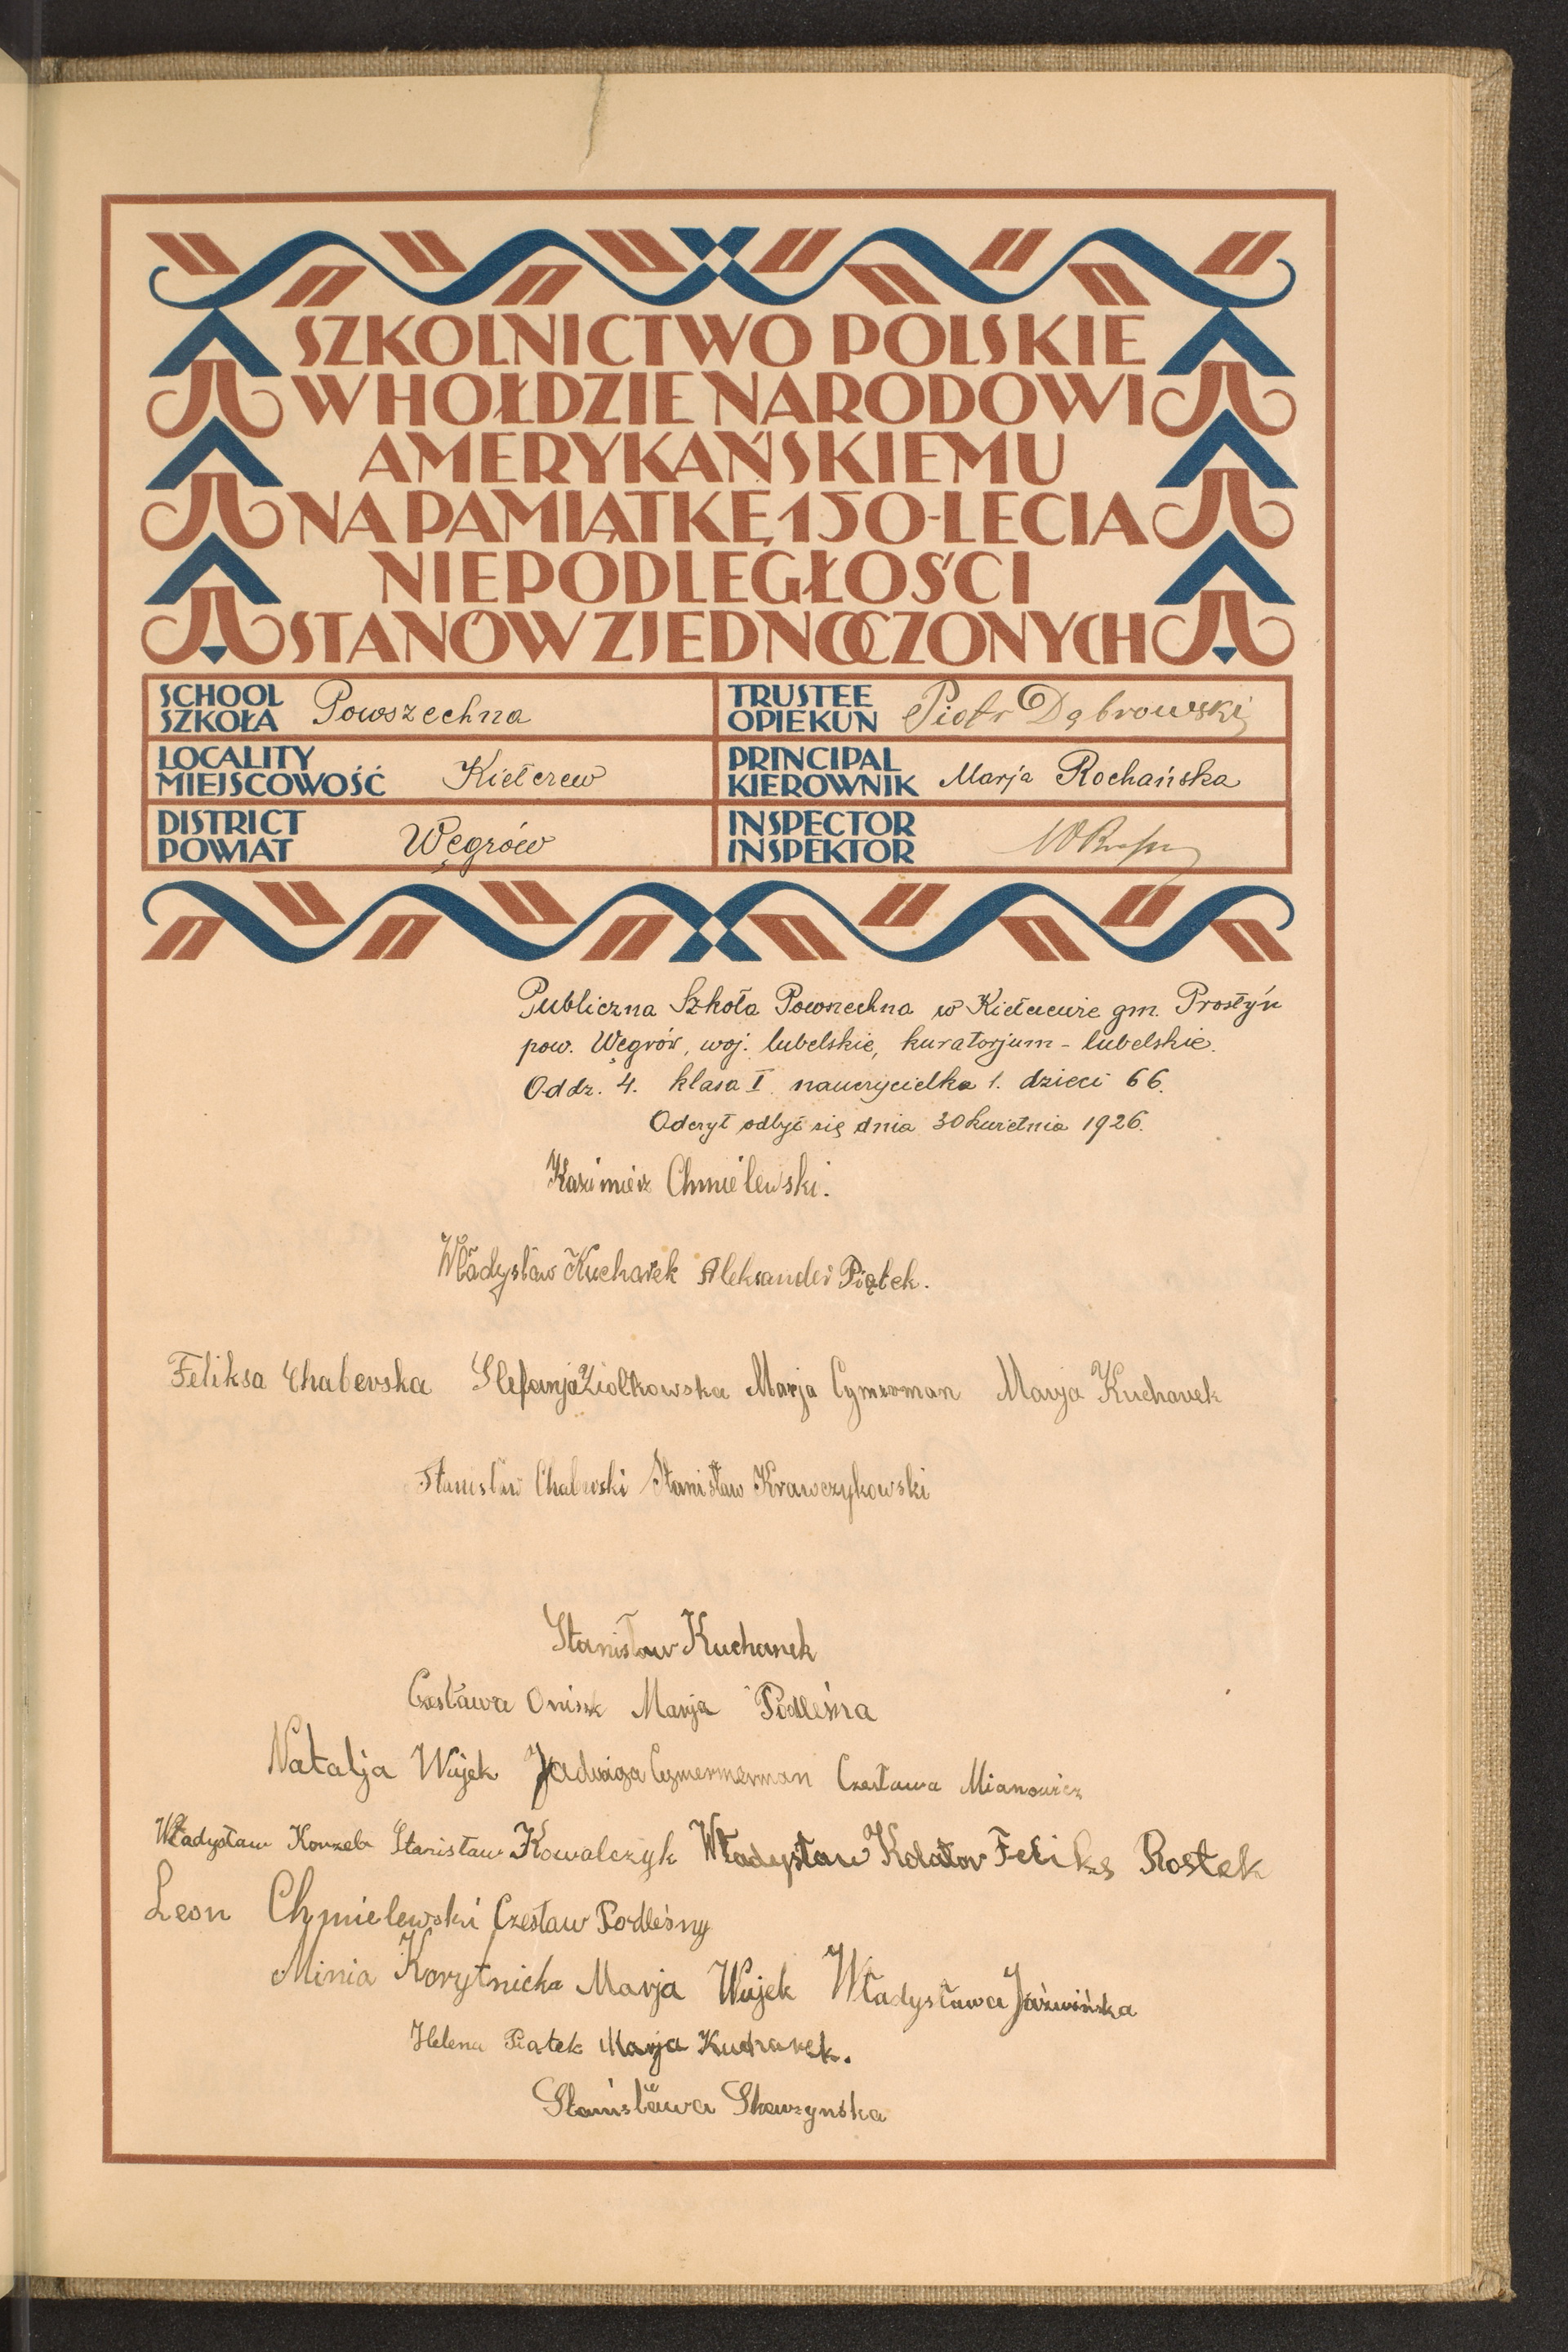 SZKOLNICTWO POLSKIE
W HOŁDZIE NARODOWI
AMERYKAŃSKIEMU
NA PAMIĄTKĘ 150-LECIA
NIEPODLEGŁOŚCI
STANÓW ZJEDNOCZONYCH
SCHOOL
SZKOŁA Powszechna
TRUSTEE
OPIEKUN Piotr Dąbrowski
LOCALITY
MIEJSCOWOŚĆ Kiełczew
PRINCIPAL
KIEROWNIK Marja Rochańska
DISTRICT
POWIAT Węgrów
INSPECTOR
INSPEKTOR
Publiczna Szkoła Powszechna w Kiełczewie gm. Prostyń
pow. Węgrów, woj. lubelskie, kuratorjum - lubelskie.
Oddz. 4. klasa I nauczycielka 1. dzieci 66.
Odczyt odbył się dnia 30 kwietnia 1926.
Kazimierz Chmielewski.
Władysław Kucharek Aleksander Piątek.
Feliksa Chaberska Stefanja Ziolkowska Marja Cymerman Marja Kucharek
Stanisław Stanisław Krawczykowski
Stanisław Kucharek
Czesława Onisk Marja Podleśna
Natalja Wujek Jadwiga Cymermerman Czesława Mianowicz
Władysław Stanisław Kowalczyk Władysław Kolator Feliks Rostek
Leon Chmielewski Czesław Podleśny
Minia Korytnicka Marja Wujek Władysława Jaźwińska
Helena Piątek Marja Kucharek.
Stanisława Skawzynska